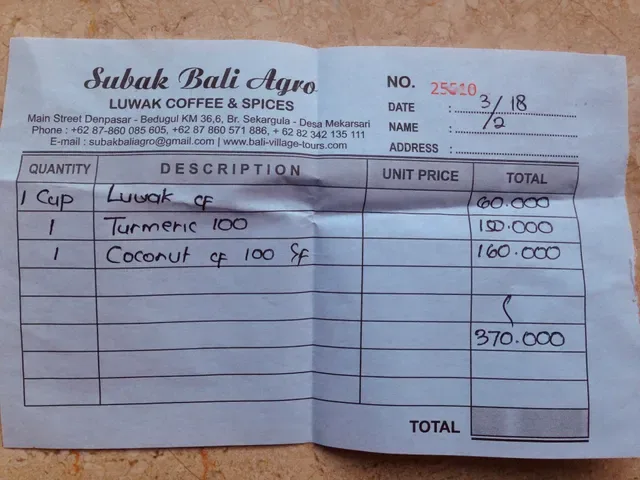 Subak Bali Agro
LUWAK COFFEE & SPICES
Main Street Denpasar - Bedugul KM 36,6, Br. Sekargula - Desa Mekarsari
Phone : +62 87-860 085 605, +62 87-860 571 886, + 62 82 342 135 111
E-mail : subakbaliagro@gmail.com | www.bali-village-tours.com
NO. 25510
DATE : 3/18
/2
NAME :
ADDRESS :
QUANTITY DESCRIPTION UNIT PRICE TOTAL
1 Cup Luwak cf 60.000
1 Turmeric 100 150.000
1 Coconut cf 100 gf 160.000
370.000
TOTAL